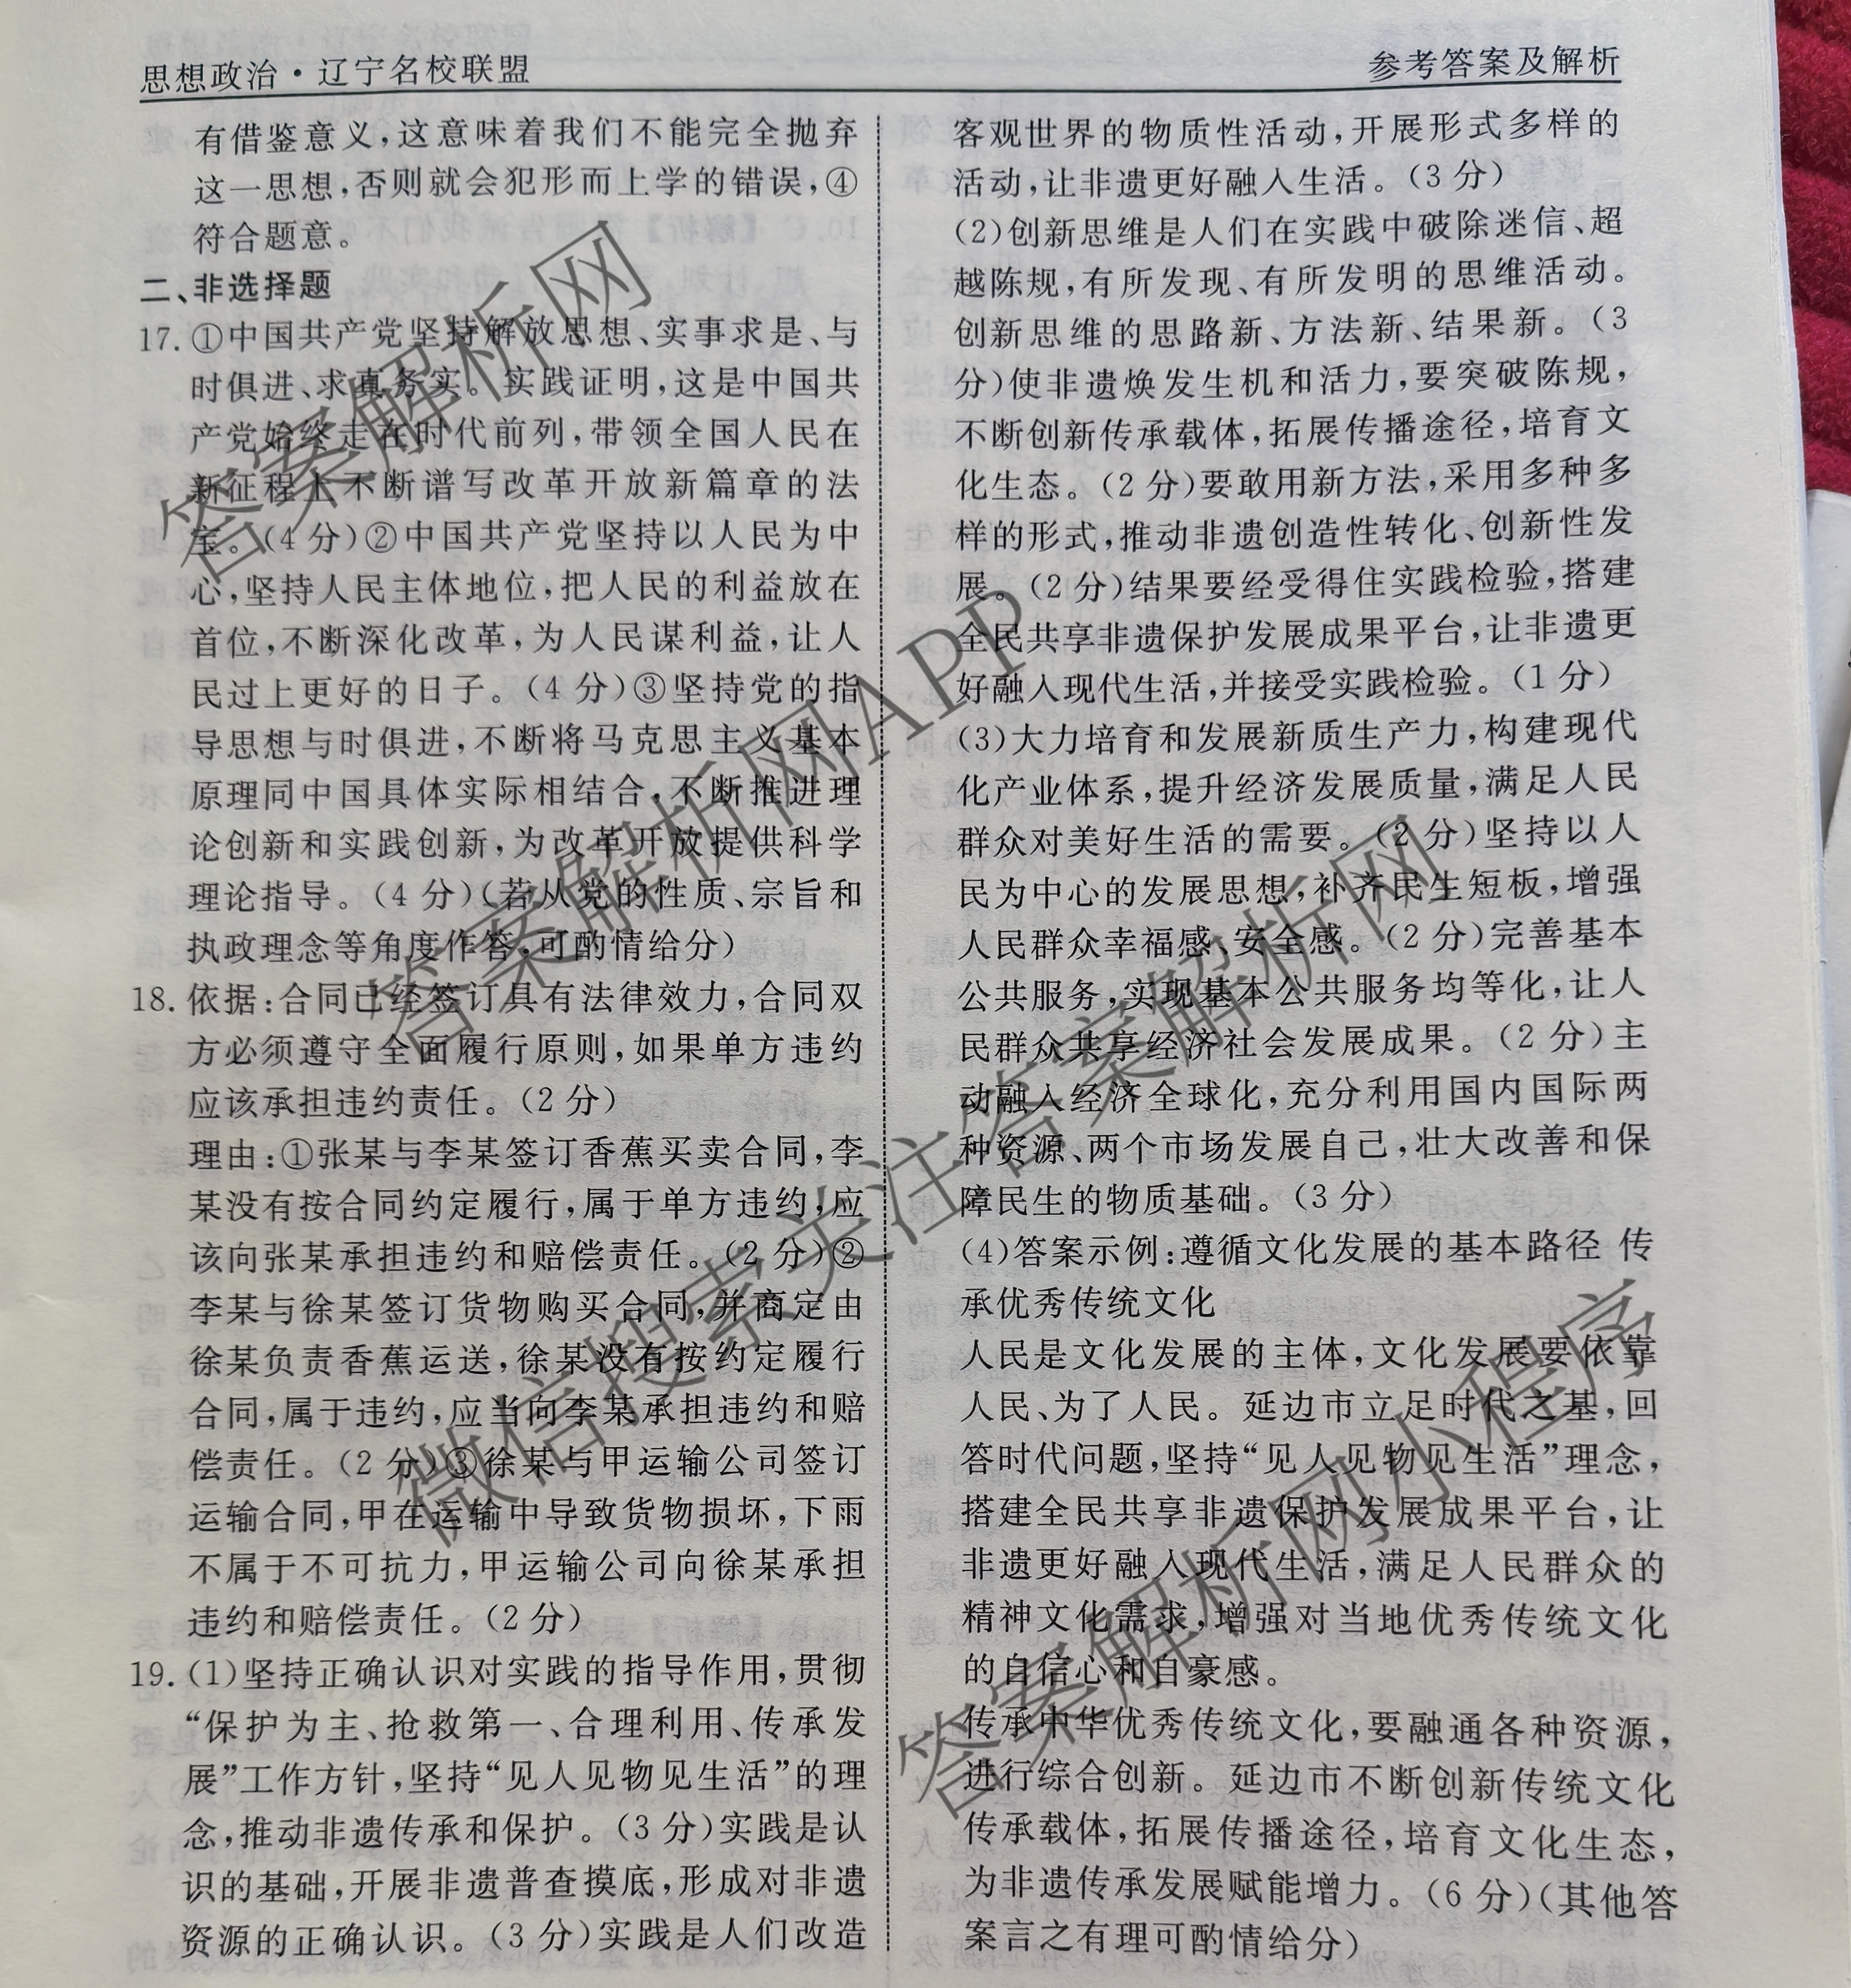 思想政治·辽宁名校联盟
参考答案及解析
有借鉴意义,这意味着我们不能完全抛弃
这一思想,否则就会犯形而上学的错误,④
符合题意。
二、非选择题
17.①中国共产党坚持解放思想、实事求是、与
时俱进、求真务实。实践证明,这是中国共
产党始终走在时代前列,带领全国人民在
新征程上不断谱写改革开放新篇章的法
宝。(4分)②中国共产党坚持以人民为中
心,坚持人民主体地位,把人民的利益放在
首位,不断深化改革,为人民谋利益,让人
民过上更好的日子。(4分)③坚持党的指
导思想与时俱进,不断将马克思主义基本
原理同中国具体实际相结合,不断推进理
论创新和实践创新,为改革开放提供科学
理论指导。(4分)(若从党的性质、宗旨和
执政理念等角度作答,可酌情给分)
18.依据:合同已经签订具有法律效力,合同双
方必须遵守全面履行原则,如果单方违约
应该承担违约责任。(2分)
理由:①张某与李某签订香蕉买卖合同,李
某没有按合同约定履行,属于单方违约,应
该向张某承担违约和赔偿责任。(2分)②
李某与徐某签订货物购买合同,并商定由
徐某负责香蕉运送,徐某没有按约定履行
合同,属于违约,应当向李某承担违约和赔
偿责任。(2分)③徐某与甲运输公司签订
运输合同,甲在运输中导致货物损坏,下雨
不属于不可抗力,甲运输公司向徐某承担
违约和赔偿责任。(2分)
19.(1)坚持正确认识对实践的指导作用,贯彻
“保护为主、抢救第一、合理利用、传承发
展”工作方针,坚持“见人见物见生活”的理
念,推动非遗传承和保护。(3分)实践是认
识的基础,开展非遗普查摸底,形成对非遗
资源的正确认识。(3分)实践是人们改造
客观世界的物质性活动,开展形式多样的
活动,让非遗更好融入生活。(3分)
(2)创新思维是人们在实践中破除迷信、超
越陈规,有所发现、有所发明的思维活动。
创新思维的思路新、方法新、结果新。(3
分)使非遗焕发生机和活力,要突破陈规,
不断创新传承载体,拓展传播途径,培育文
化生态。(2分)要敢用新方法,采用多种多
样的形式,推动非遗创造性转化、创新性发
展。(2分)结果要经受得住实践检验,搭建
全民共享非遗保护发展成果平台,让非遗更
好融入现代生活,并接受实践检验。(1分)
(3)大力培育和发展新质生产力,构建现代
化产业体系,提升经济发展质量,满足人民
群众对美好生活的需要。(2分)坚持以人
民为中心的发展思想,补齐民生短板,增强
人民群众幸福感、安全感。(2分)完善基本
公共服务,实现基本公共服务均等化,让人
民群众共享经济社会发展成果。(2分)主
动融入经济全球化,充分利用国内国际两
种资源、两个市场发展自己,壮大改善和保
障民生的物质基础。(3分)
(4)答案示例:遵循文化发展的基本路径 传
承优秀传统文化
人民是文化发展的主体,文化发展要依靠
人民、为了人民。延边市立足时代之基,回
答时代问题,坚持“见人见物见生活”理念,
搭建全民共享非遗保护发展成果平台,让
非遗更好融入现代生活,满足人民群众的
精神文化需求,增强对当地优秀传统文化
的自信心和自豪感。
传承中华优秀传统文化,要融通各种资源,
进行综合创新。延边市不断创新传统文化
传承载体,拓展传播途径,培育文化生态,
为非遗传承发展赋能增力。(6分)(其他答
案言之有理可酌情给分)
答案解析网
答案解析网APP
微信搜索关注答案解析网
答案解析网小程序